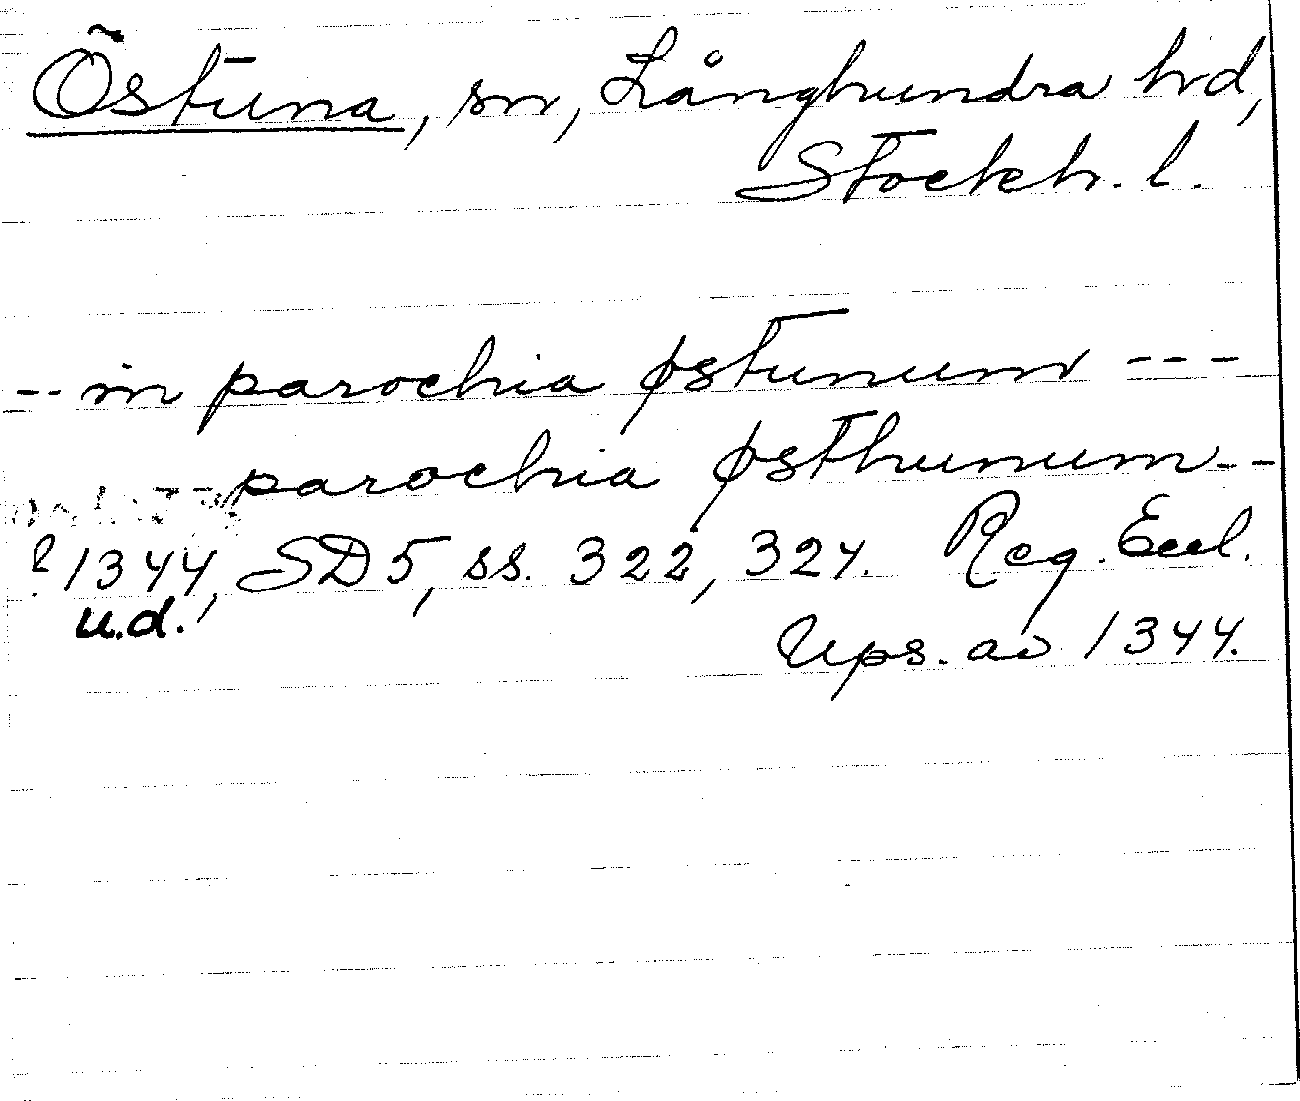 Östuna, sn, Långhundra hd,
Stockh. l.
-- in parochia østunum ---
parochia østhunum --
? 1344, SD5, ss. 322, 324. Reg. Eccl.
u.d.
Ups. av 1344.